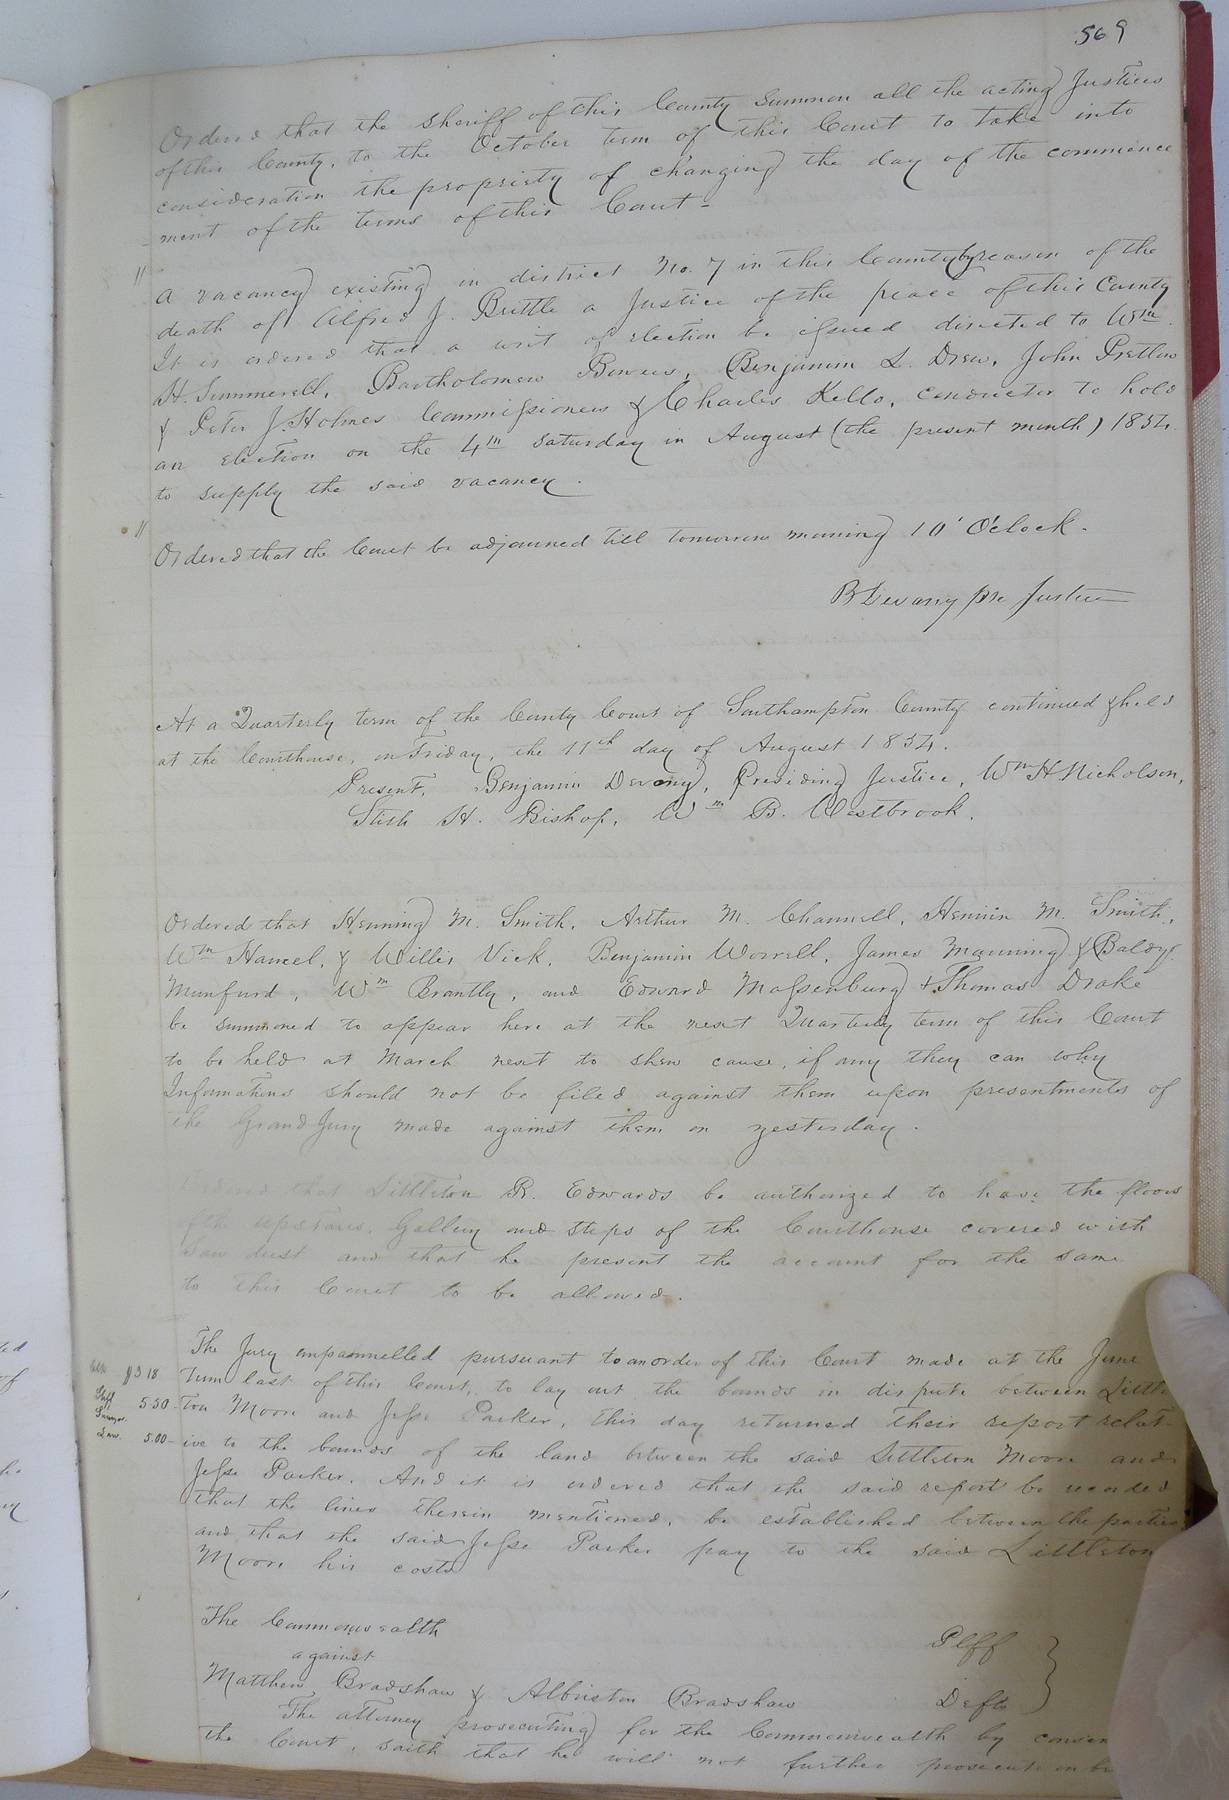 569
Ordered that the Sheriff of this County Summon all the acting Justices
of this County, to the October term of this Court to take into
consideration the propriety of changing the day of the commence
- ment of the terms of this Court -
"
A vacancy existing in district No. 7 in this County by reason of the
death of Alfred J. Brittle a Justice of the peace of this County
It is ordered that a writ of election be issued directed to Wm.
H. Summerell, Bartholomew Bowers, Benjamin L. Drew, John Pretlow
& Peter J. Holmes Commissioners & Charles Kello, conductor to hold
an election on the 4th Saturday in August (the present month) 1854.
to supply the said vacancy.
"
Ordered that the Court be adjourned till tomorrow morning 10 O'clock.
B Devany pre Justice
At a Quarterly term of the County Court of Southampton County continued & held
at the Courthouse, on Friday, the 11th day of August 1854.
Present, Benjamin Devany, Presiding Justice, Wm H Nicholson,
Stith H. Bishop, Wm B. Westbrook.
Ordered that Henning M. Smith, Arthur M. Channell, Hennin M. Smith,
Wm Hancel, & Willis Vick, Benjamin Worrell, James Manning & Baldy
Munfurd, Wm Brantly, and Edward Massenburg & Thomas Drake
be summoned to appear here at the next Quarterly term of this Court
to be held at March next to shew cause, if any they can why
Informations should not be filed against them upon presentments of
the Grand Jury made against them on yesterday.
Ordered that Littleton R. Edwards be authorized to have the floors
of the upstairs, Gallery and steps of the Courthouse covered with
saw dust and that he present the account for the same
to this Court to be allowed.
The Jury empannelled pursuant to an order of this Court made at the June
$3 18 Term last of this Court, to lay out the bounds in dispute between Little
5.50 - ton Moore and Jesse Parker, this day returned their report relat-
Surveyor
Law. 5.00 - ive to the bounds of the land between the said Littleton Moore and
Jesse Parker. And it is ordered that the said report be recorded
that the lines therein mentioned, be established between the parties
and that the said Jesse Parker pay to the said Littleton
Moore his costs
The Commonwealth Plff
against
Matthew Bradshaw & Albriston Bradshaw Defts
The attorney prosecuting for the Commonwealth by consen
the Court, saith that he will not further prosecute on be